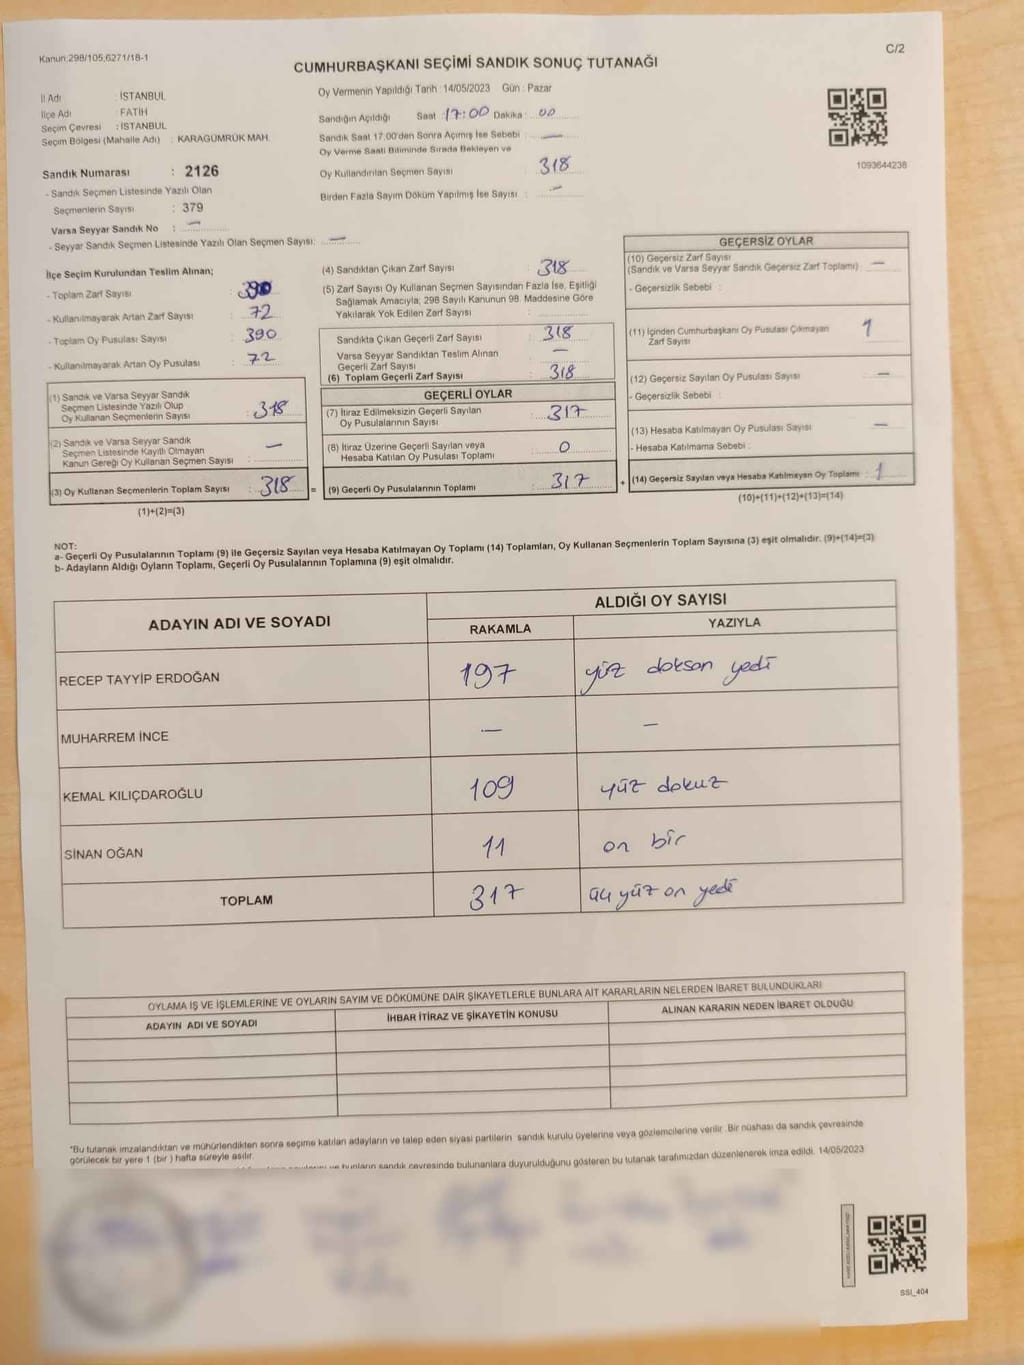 Kanun:298/105,6271/18-1
C/2
CUMHURBAŞKANI SEÇİMİ SANDIK SONUÇ TUTANAĞI
İl Adı : İSTANBUL
İlçe Adı : FATİH
Seçim Çevresi : İSTANBUL
Seçim Bölgesi (Mahalle Adı) : KARAGÜMRÜK MAH.
Sandık Numarası : 2126
- Sandık Seçmen Listesinde Yazılı Olan
Seçmenlerin Sayısı : 379
Varsa Seyyar Sandık No : —
- Seyyar Sandık Seçmen Listesinde Yazılı Olan Seçmen Sayısı: —
Oy Vermenin Yapıldığı Tarih : 14/05/2023 Gün : Pazar
Sandığın Açıldığı Saat : 17:00 Dakika : 00
Sandık Saat 17.00'den Sonra Açımış İse Sebebi : —
Oy Verme Saati Bitiminde Sırada Bekleyen ve
Oy Kullandırılan Seçmen Sayısı : 318
Birden Fazla Sayım Döküm Yapılmış İse Sayısı : —
1093644238
İlçe Seçim Kurulundan Teslim Alınan;
- Toplam Zarf Sayısı : 390
- Kullanılmayarak Artan Zarf Sayısı : 72
- Toplam Oy Pusulası Sayısı : 390
- Kullanılmayarak Artan Oy Pusulası : 72
(1) Sandık ve Varsa Seyyar Sandık
Seçmen Listesinde Yazılı Olup
Oy Kullanan Seçmenlerin Sayısı : 318
(2) Sandık ve Varsa Seyyar Sandık
Seçmen Listesinde Kayıtlı Olmayan
Kanun Gereği Oy Kullanan Seçmen Sayısı : —
(3) Oy Kullanan Seçmenlerin Toplam Sayısı : 318
(1)+(2)=(3)
(4) Sandıktan Çıkan Zarf Sayısı : 318
(5) Zarf Sayısı Oy Kullanan Seçmen Sayısından Fazla İse, Eşitliği
Sağlamak Amacıyla; 298 Sayılı Kanunun 98. Maddesine Göre
Yakılarak Yok Edilen Zarf Sayısı :
Sandıkta Çıkan Geçerli Zarf Sayısı : 318
Varsa Seyyar Sandıktan Teslim Alınan
Geçerli Zarf Sayısı : —
(6) Toplam Geçerli Zarf Sayısı : 318
=
GEÇERLİ OYLAR
(7) İtiraz Edilmeksizin Geçerli Sayılan
Oy Pusulalarının Sayısı : 317
(8) İtiraz Üzerine Geçerli Sayılan veya
Hesaba Katılan Oy Pusulası Toplamı : 0
(9) Geçerli Oy Pusulalarının Toplamı : 317
+
GEÇERSİZ OYLAR
(10) Geçersiz Zarf Sayısı
(Sandık ve Varsa Seyyar Sandık Geçersiz Zarf Toplamı) : —
- Geçersizlik Sebebi :
(11) İçinden Cumhurbaşkanı Oy Pusulası Çıkmayan
Zarf Sayısı : 1
(12) Geçersiz Sayılan Oy Pusulası Sayısı : —
- Geçersizlik Sebebi :
(13) Hesaba Katılmayan Oy Pusulası Sayısı : —
- Hesaba Katılmama Sebebi :
(14) Geçersiz Sayılan veya Hesaba Katılmayan Oy Toplamı : 1
(10)+(11)+(12)+(13)=(14)
NOT:
a- Geçerli Oy Pusulalarının Toplamı (9) ile Geçersiz Sayılan veya Hesaba Katılmayan Oy Toplamı (14) Toplamları, Oy Kullanan Seçmenlerin Toplam Sayısına (3) eşit olmalıdır. (9)+(14)=(3)
b- Adayların Aldığı Oyların Toplamı, Geçerli Oy Pusulalarının Toplamına (9) eşit olmalıdır.
ADAYIN ADI VE SOYADI
ALDIĞI OY SAYISI
RAKAMLA YAZIYLA
RECEP TAYYİP ERDOĞAN 197 yüz doksan yedi
MUHARREM İNCE — —
KEMAL KILIÇDAROĞLU 109 yüz dokuz
SİNAN OĞAN 11 on bir
TOPLAM 317 üç yüz on yedi
OYLAMA İŞ VE İŞLEMLERİNE VE OYLARIN SAYIM VE DÖKÜMÜNE DAİR ŞİKAYETLERLE BUNLARA AİT KARARLARIN NELERDEN İBARET BULUNDUKLARI
ADAYIN ADI VE SOYADI İHBAR İTİRAZ VE ŞİKAYETİN KONUSU ALINAN KARARIN NEDEN İBARET OLDUĞU
*Bu tutanak imzalandıktan ve mühürlendikten sonra seçime katılan adayların ve talep eden siyasi partilerin sandık kurulu üyelerine veya gözlemcilerine verilir. Bir nüshası da sandık çevresinde
görülecek bir yere 1 (bir) hafta süreyle asılır.
ve bunların sandık çevresinde bulunanlara duyurulduğunu gösteren bu tutanak tarafımızdan düzenlenerek imza edildi. 14/05/2023
SSI_404